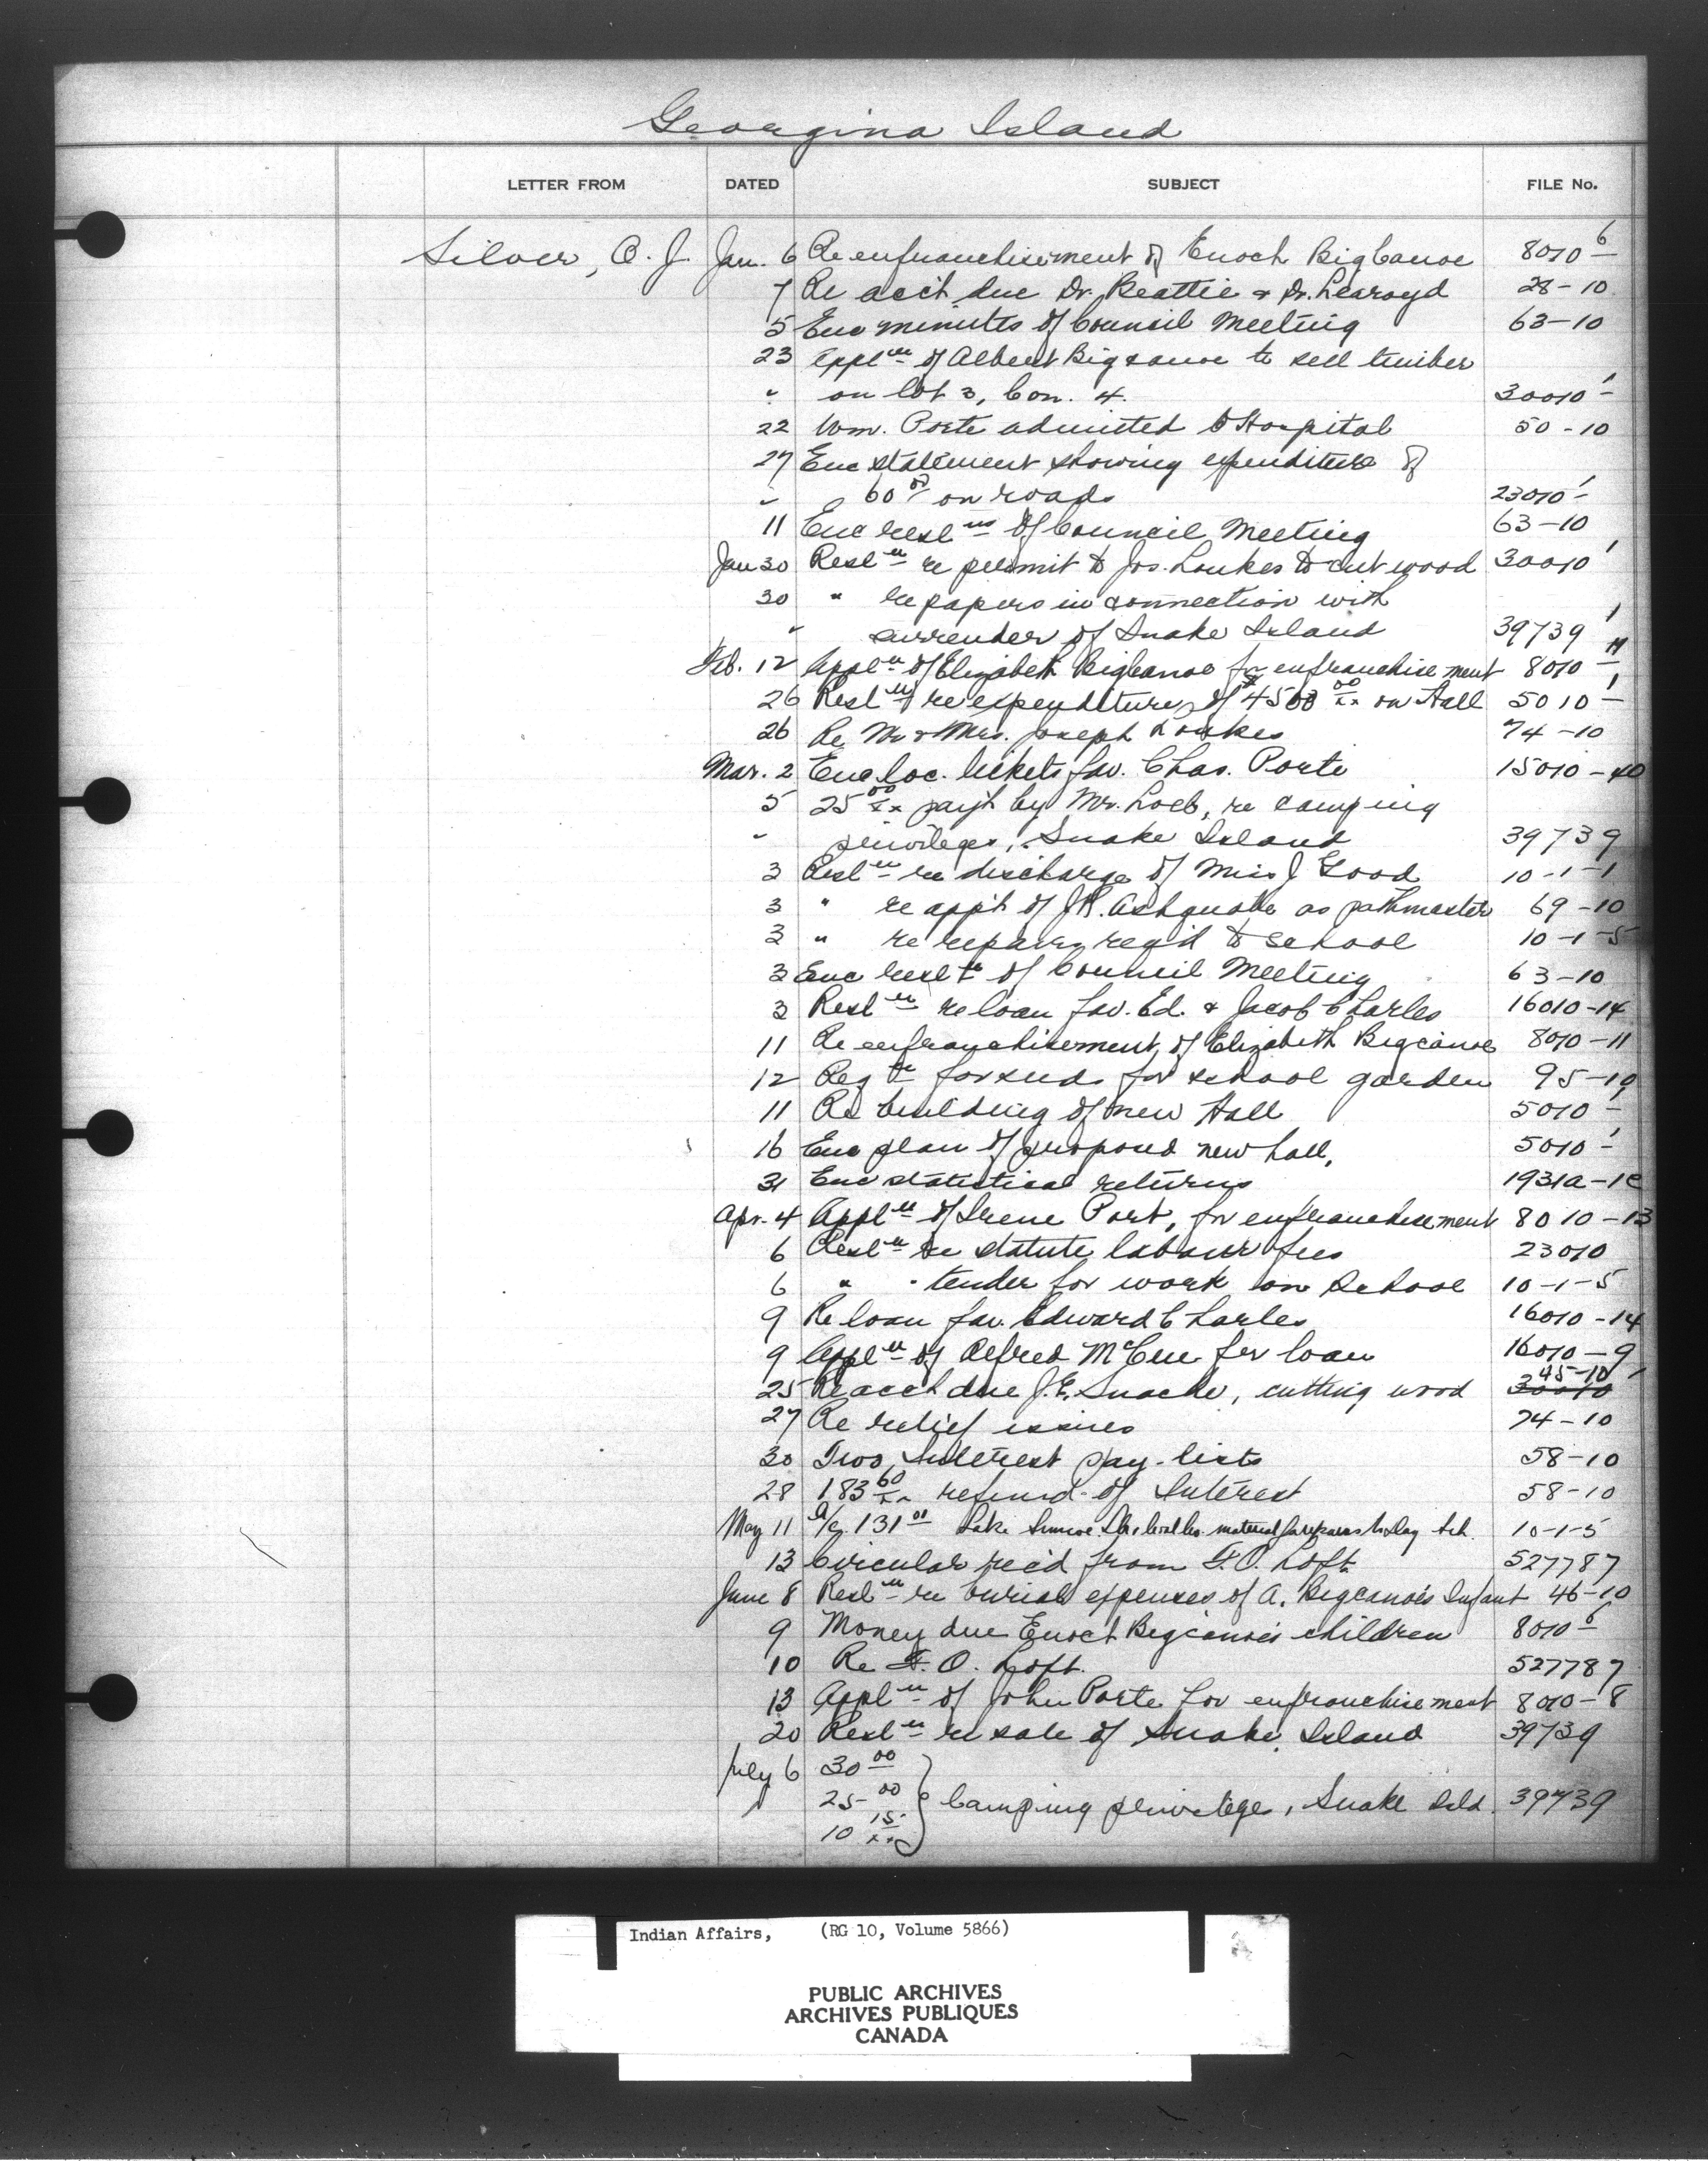 Georgina Island
LETTER FROM DATED SUBJECT FILE No.
Silver, A. J. Jan. 6 Re enfranchisement of Enoch Big Canoe 8010 - 6
7 Re acct due Dr. Beattie & Dr. Learoyd 28-10
5 Enc minutes of Council Meeting 63-10
23 Appl'n of Albert Bigcanoe to sell timber
" on lot 3, Con. 4. 30010 - 1
22 Wm. Porte admitted to Hospital 50-10
27 Enc statement showing expenditure of
" 60 00 on roads 23010 - 1
11 Enc resl'ns of Council Meeting 63-10
Jan 30 Resl'n re permit to Jos. Loukes to cut wood 30010 1
30 " re papers in connection with
" surrender of Snake Island 39739
Feb. 12 Appl'n of Elizabeth Bigcanoe for enfranchisement 8010 - 11
26 Resl'n re expenditure of $4500 00/xx on Hall 5010 - 1
26 Re Mr & Mrs. Joseph Loukes 74-10
Mar. 2 Enc loc. tickets fav. Chas. Porte 15010-40
5 25 00/xx pay't by Mr. Loeb, re camping
" privileges, Snake Island 39739
3 Resl'n re discharge of Miss J Good 10-1-1
3 " re app't of J.R. Ashquabe as pathmaster 69-10
3 " re repairs req'd to school 10-1-5
3 Enc resl'n of Council Meeting 63-10
3 Resl'n re loan fav. Ed. & Jacob Charles 16010-14
11 Re enfranchisement of Elizabeth Bigcanoe 8010-11
12 Reqn for seeds for school garden 95-10
11 Re building of new Hall 5010 - 1
16 Enc plan of proposed new hall, 5010 - 1
31 Enc statistical returns 1931a-1c
Apr. 4 Appl'n of Irene Port, for enfranchisement 8010-13
6 Resl'n re statute labour fees 23010
6 " " tender for work on School 10-1-5
9 Re loan fav. Edward Charles 16010-14
9 Appl'n of Alfred McCue for loan 16010-9
25 Re acct due J.E. Snache, cutting wood 30010 45-10
27 Re relief issues 74-10
30 Two Interest pay-lists 58-10
28 183 60/xx refund of Interest 58-10
May 11 a/c 131 01 Lake Simcoe material for repairs to Day Sch. 10-1-5
13 Circular rec'd from F.O. Loft 527787
June 8 Resl'n re burial expenses of A. Bigcanoe's Infant 46-10
9 Money due Enoch Bigcanoe's children 8010 - 6
10 Re F. O. Loft. 527787
13 Appl'n of John Porte for enfranchisement 8010-8
20 Resl'n re sale of Snake Island 39739
July 6 30 00
25 00 } Camping privilege, Snake Isld. 39739
10 15/xx
Indian Affairs, (RG 10, Volume 5866)
PUBLIC ARCHIVES
ARCHIVES PUBLIQUES
CANADA